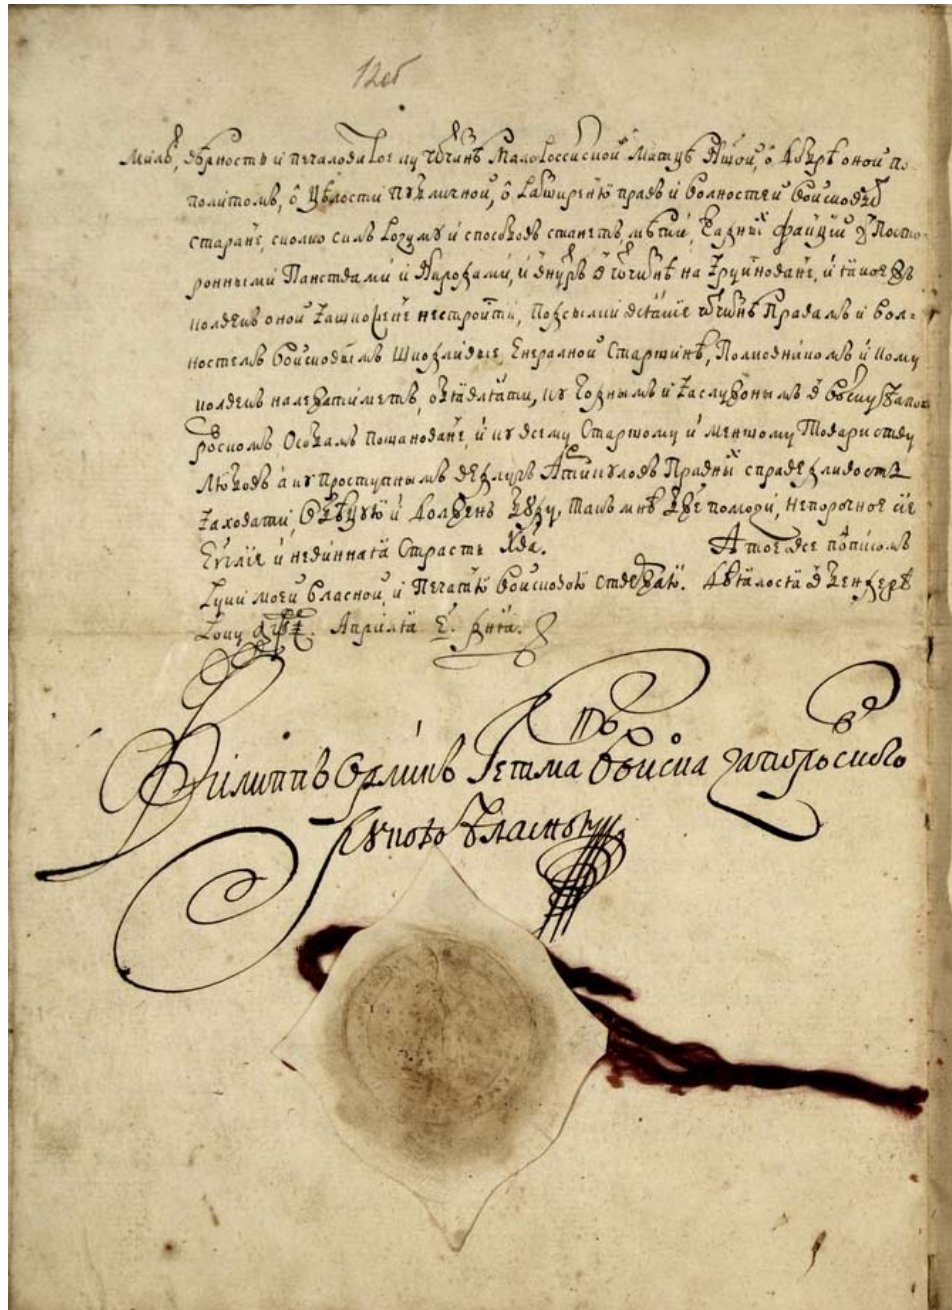 12об
Милость, вѣрность и печаловитое ку ѡтчизнѣ Малороссійской Матцѣ нашой, ѡ добрѣ оной по-
политомъ, ѡ цѣлости публичной, ѡ разширеню правъ и волностей войсковыхъ
старанє, сколко силъ розуму и способовъ станетъ, мѣти, жадныхъ факцій з посто-
ронными Панствами и Народами, и внутръ в ѡтчизнѣ на зруйнованє, и якое в
колвекъ оной зашкоженє нестроїти, подсылки всякіе ѡтчизнѣ Правамъ и вол-
ностемъ войсковымъ шкодливые, Енералной Старшинѣ, Полковникомъ и кому
колвекъ належатиметъ, обявляти, ку годнымъ и заслужонымъ в войску Запо-
рожскомъ Особамъ пошанованє, и ку всему Старшому и меншому Товариству
любовъ а ку проступнымъ ведлугъ Артикуловъ Правныхъ справедливость
заховати, обѣцую и должень буду, такъ мнѣ Бже помози, непорочное сіе
Еѵгліе и невинная Страсть Хва. А тое все подписомъ
руки моей власной, и Печатю войсковою ствержаю. Дѣялося в Бендерѣ
Року ҂аѱı. Априля е. дня.
Филиппъ Орликъ Гетманъ Войска запорозского
рукою власною